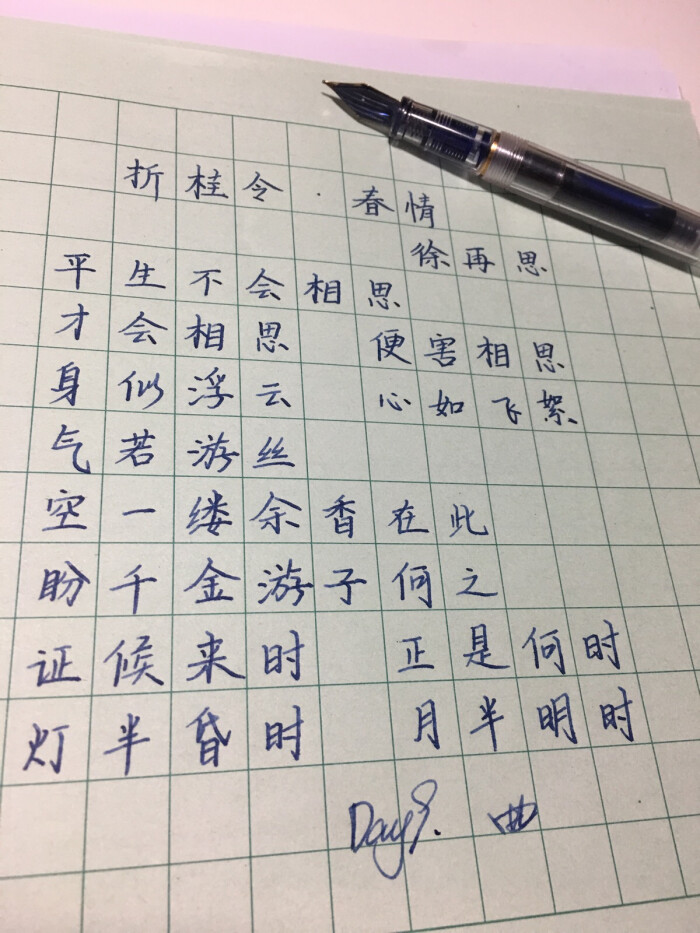 折桂令·春情
徐再思
平生不会相思
才会相思 便害相思
身似浮云 心如飞絮
气若游丝
空一缕余香在此
盼千金游子何之
证候来时 正是何时
灯半昏时 月半明时
Day9. 曲